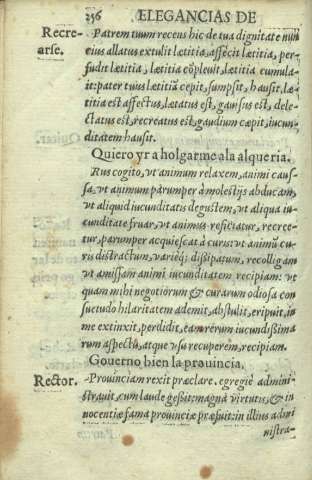 256 ÆLEGANCIAS DE
Recre-
arse.
Patrem tuum recens hic de tua dignitate nun
cius allatus extulit lætitia, affecit lætitia, per-
fudit lætitia, lætitia cōpleuit, lætitia cumula-
it: pater tuus lætitiā cepit, sumpsit, hausit, læ-
titia est affectus, lætatus est, gauisus est, dele-
ctatus est, recreatus est, gaudium cæpit, iucun-
ditatem hausit.
Quiero yr a holgarme ala alqueria.
Rus cogito, vt animum relaxem, animi caus-
sa, vt animum parumper à molestijs abducam,
vt aliquid iucunditatis degustem, vt aliqua iu-
cunditate fruar, vt animus reficiatur, recree-
tur, parumper acquiescat à curis: vt animū cu-
ris distractum, varieq; dissipatum, recolligam
vt amissam animi iucunditatem recipiam: vt
quam mihi negotiorum & curarum odiosa con
suetudo hilaritatem ademit, abstulit, eripuit, in
me extinxit, perdidit, eam rerum iucundissima
rum aspectu, atque vsu recuperem, recipiam.
Gouerno bien la prouincia.
Rector.
Prouinciam rexit præclare. egregiè admini
strauit, cum laude gessit: magna virtutis, & in
nocentiæ fama prouinciæ præfuit: in illius admi
nistra-